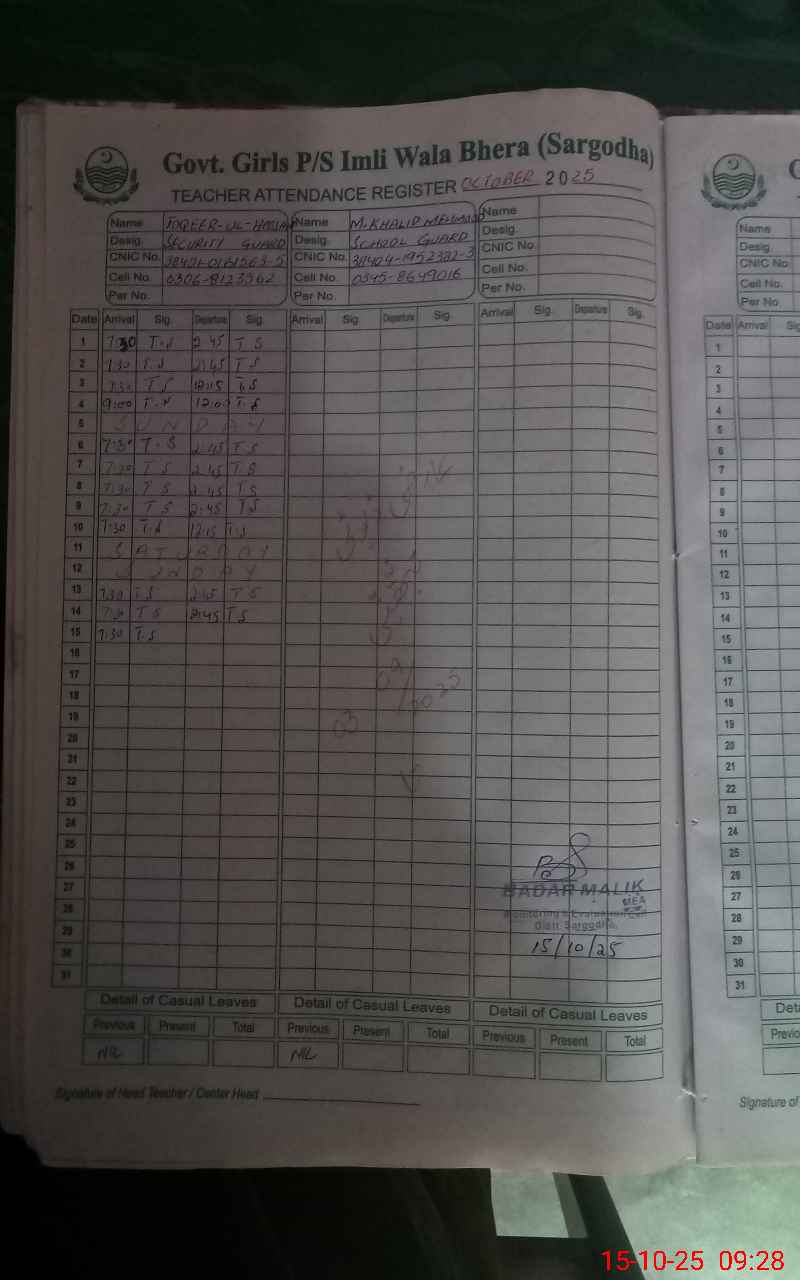 Govt. Girls P/S Imli Wala Bhera (Sargodha)
TEACHER ATTENDANCE REGISTER OCTOBER 2025
Name TOQEER-UL-HASSAN Name M.KHALID MEHMOOD Name
Desig. SECURITY GUARD Desig. SCHOOL GUARD Desig.
CNIC No. CNIC No. 38404-1952382-3 CNIC No.
Cell No. 0306-8123562 Cell No. 0345-8649016 Cell No.
Per No. Per No. Per No.
Date Arrival Sig. Departure Sig. Arrival Sig. Departure Sig. Arrival Sig. Departure Sig.
1 7:30 T.S 2:45 T S
2 7:30 T.S 2:45 T S
3 7:30 T S 12:15 T.S
4 9:00 T.S 12:00 T.S
5 S U N D A Y
6 7:30 T.S 2:45 T S
7 7:30 T S 2:45 T S
8 7:30 T S 2:45 T S
9 7:30 T S 2:45 T S
10 7:30 T.S 12:15 T.S
11 S A T U R D A Y
12 S U N D A Y
13 7:30 T S 2:45 T S
14 7:30 T S 2:45 T S
15 7:30 T.S
16
17
18
19
20
21
22
23
24
25
26
27
28
29
30
31
03/09/2025
BADAR MALIK
MEA
Monitoring & Evaluation
Distt. Sargodha.
15/10/25
Detail of Casual Leaves Detail of Casual Leaves Detail of Casual Leaves
Previous Present Total Previous Present Total Previous Present Total
NIL NIL
Signature of Head Teacher / Center Head
Date Arrival Sig.
Name
Desig.
CNIC No
Cell No.
Per No.
1
2
3
4
5
6
7
8
9
10
11
12
13
14
15
16
17
18
19
20
21
22
23
24
25
26
27
28
29
30
31
Signature of
15-10-25 09:28